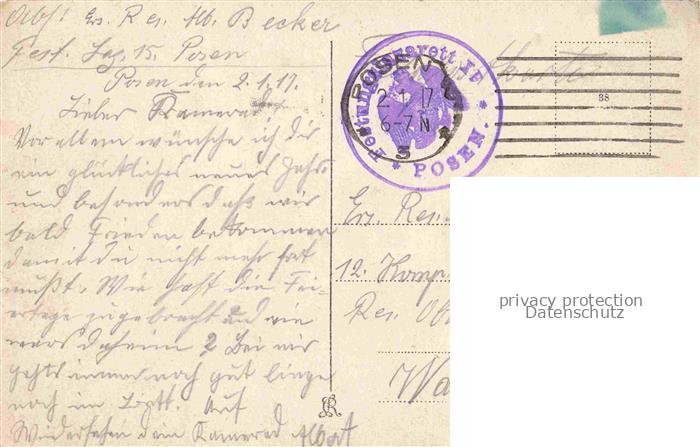 Abs: Ers. Res. Alb. Becker
Fest. Laz. 15. Posen
Posen den 2.1.17.
Lieber Kamerad
Vor allem wünsche ich dir
ein glückliches neues Jahr.
und besonders daß wir
bald Frieden bekommen
damit du nicht mehr fort
mußt. Wie hast die Fei-
ertage zugebracht und wie
wars daheim? Bei mir
gehts immer noch gut liege
noch im Laztt. Auf
Wiedersehen dein Kamerad Albert
Festungslazarett
* POSEN. *
POSEN
2.1.17
6-7N
38
Ers. Res.
12. Komp.
Res.
privacy protection
Datenschutz